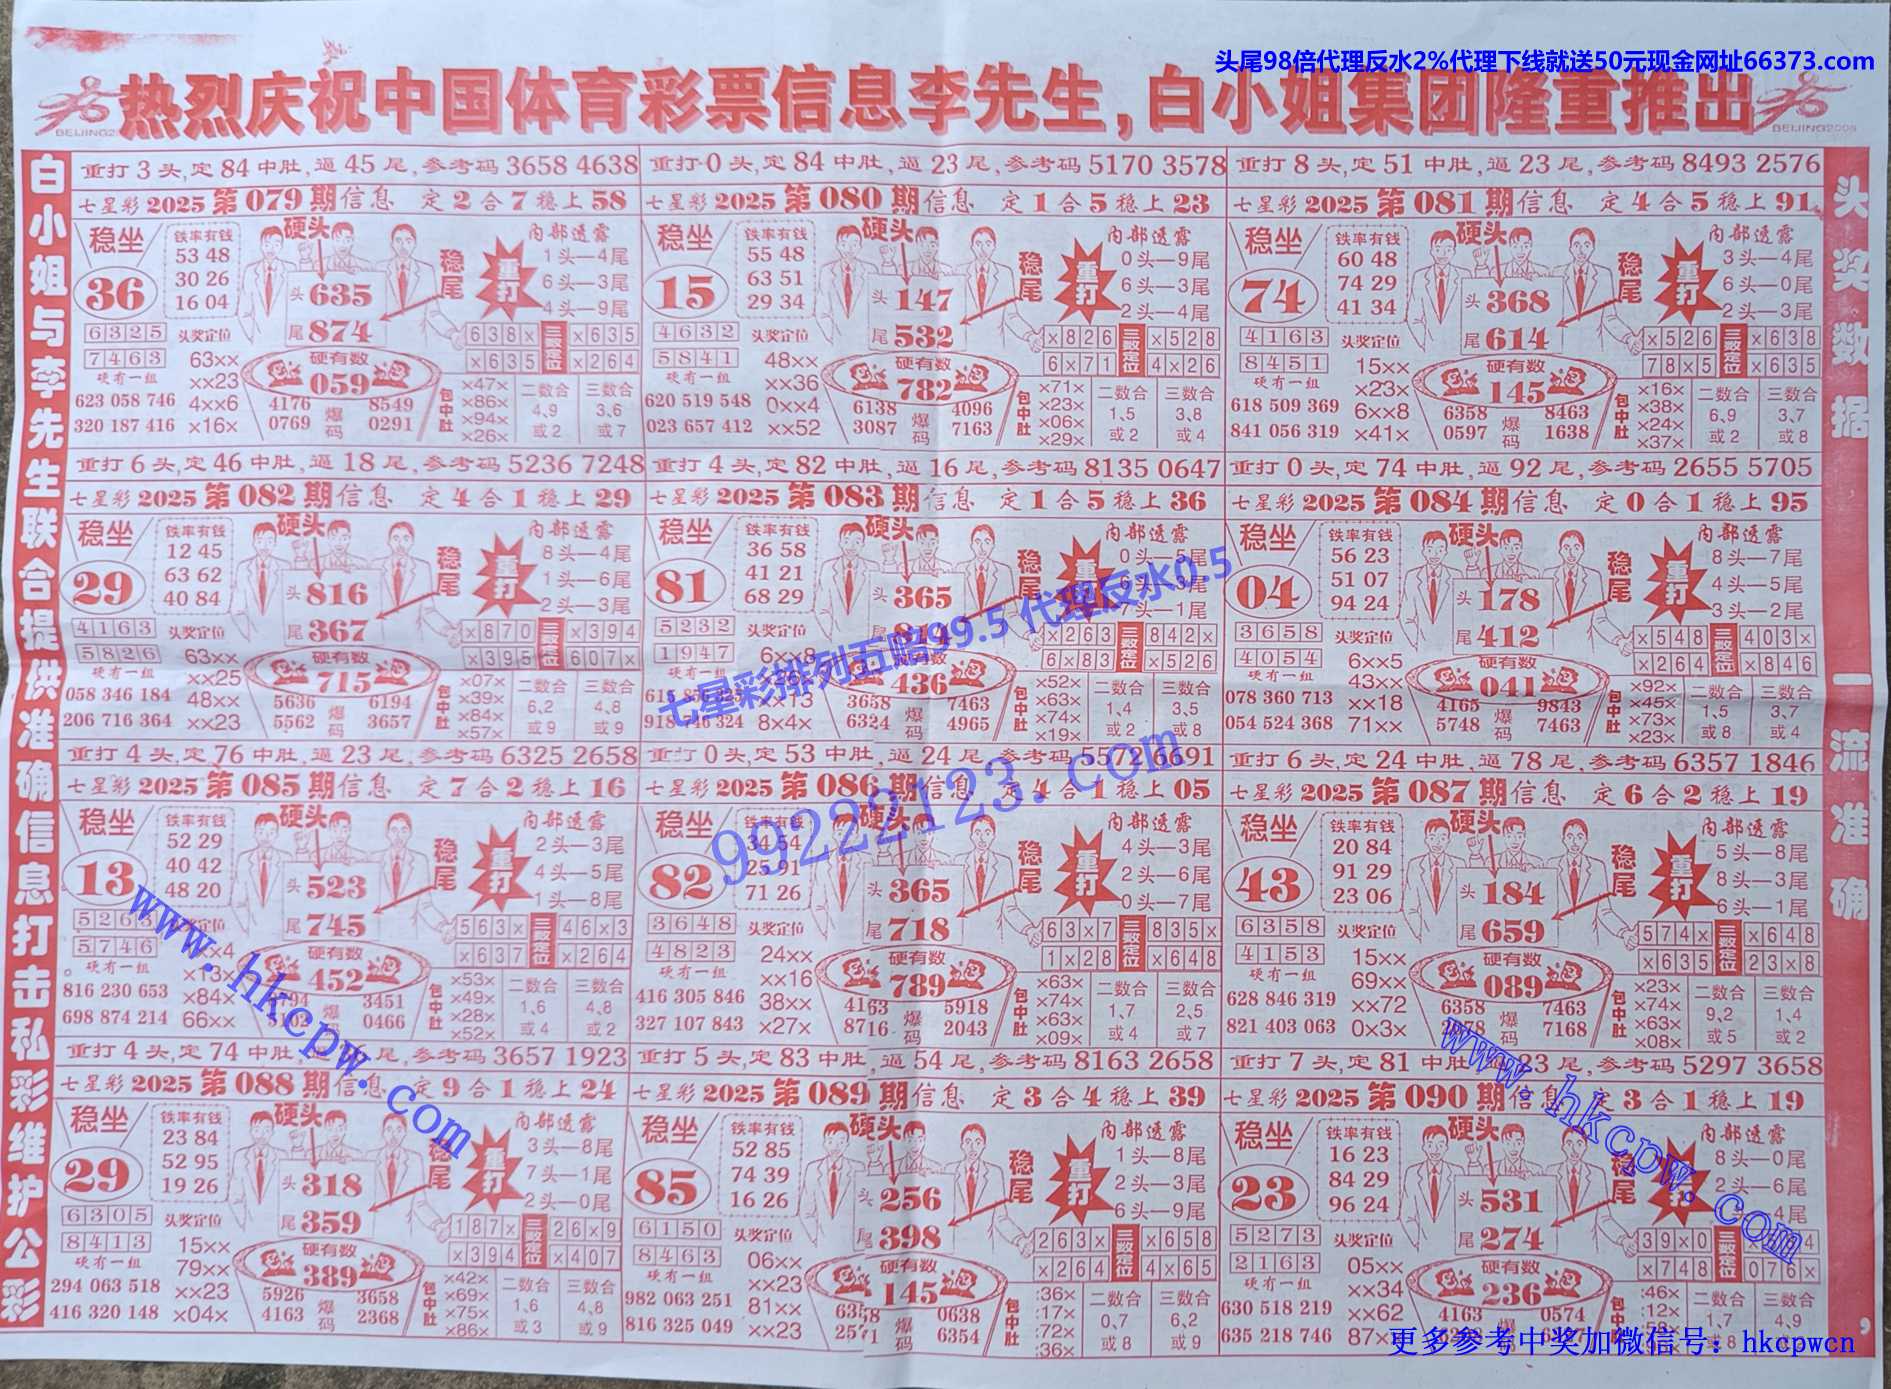 头尾98倍代理反水2%代理下线就送50元现金网址66373.com
热烈庆祝中国体育彩票信息李先生,白小姐集团隆重推出
BEIJING2008
白小姐与李先生联合提供准确信息打击私彩维护公彩
头奖数据一流准确
重打3头,定84中肚,逼45尾,参考码3658 4638
七星彩2025第079期信息 定2合7稳上58
稳坐 36
铁率有钱
53 48
30 26
16 04
硬头
头635
尾874
稳尾
重打
内部透露
1头—4尾
6头—3尾
4头—9尾
6325
7463
头奖定位
63××
××23
4××6
×16×
硬有一组
623 058 746
320 187 416
硬有数
059
4176 爆码 8549
0769 0291
638× 三数定位 ×635
×635 ×264
包中肚
×47×
×86×
×94×
×26×
二数合
4,9
或2
三数合
3,6
或7
重打0头,定84中肚,逼23尾,参考码5170 3578
七星彩2025第080期信息 定1合5稳上23
稳坐 15
铁率有钱
55 48
63 51
29 34
硬头
头147
尾532
稳尾
重打
内部透露
0头—9尾
6头—3尾
2头—4尾
4632
5841
头奖定位
48××
××36
0××4
××52
硬有一组
620 519 548
023 657 412
硬有数
782
6138 爆码 4096
3087 7163
×826 三数定位 ×528
6×71 4×26
包中肚
×71×
×23×
×06×
×29×
二数合
1,5
或2
三数合
3,8
或4
重打8头,定51中肚,逼23尾,参考码8493 2576
七星彩2025第081期信息 定4合5稳上91
稳坐 74
铁率有钱
60 48
74 29
41 34
硬头
头368
尾614
稳尾
重打
内部透露
3头—4尾
6头—0尾
2头—3尾
4163
8451
头奖定位
15××
×23×
6××8
×41×
硬有一组
618 509 369
841 056 319
硬有数
145
6358 爆码 8463
0597 1638
×526 三数定位 ×638
78×5 ×635
包中肚
×16×
×38×
×24×
×37×
二数合
6,9
或2
三数合
3,7
或8
重打6头,定46中肚,逼18尾,参考码5236 7248
七星彩2025第082期信息 定4合1稳上29
稳坐 29
铁率有钱
12 45
63 62
40 84
硬头
头816
尾367
稳尾
重打
内部透露
8头—4尾
1头—6尾
2头—3尾
4163
5826
头奖定位
63××
××25
48××
××23
硬有一组
058 346 184
206 716 364
硬有数
715
5636 爆码 6194
5562 3657
×870 三数定位 ×394
×395 607×
包中肚
×07×
×39×
×84×
×57×
二数合
6,2
或9
三数合
4,8
或9
重打4头,定82中肚,逼16尾,参考码8135 0647
七星彩2025第083期信息 定1合5稳上36
稳坐 81
铁率有钱
36 58
41 21
68 29
硬头
头365
稳尾
内部透露
0头—5尾
7头—1尾
5232
1947
头奖定位
6××8
8×4×
918 746 324
硬有数
436
3658 爆码 7463
6324 4965
×263 三数定位 842×
6×83 ×526
包中肚
×52×
×63×
×74×
×19×
二数合
1,4
或2
三数合
3,5
或8
重打0头,定74中肚,逼92尾,参考码2655 5705
七星彩2025第084期信息 定0合1稳上95
稳坐 04
铁率有钱
56 23
51 07
94 24
硬头
头178
尾412
稳尾
重打
内部透露
8头—7尾
4头—5尾
3头—2尾
3658
4054
头奖定位
6××5
43××
××18
71××
硬有一组
078 360 713
054 524 368
硬有数
041
4165 爆码 9843
5748 7463
×548 三数定位 403×
×264 ×846
包中肚
×92×
×45×
×73×
×23×
二数合
1,5
或8
三数合
3,7
或4
七星彩排列五赔99.5 代理反水0.5
99222123.com
重打4头,定76中肚,逼23尾,参考码6325 2658
七星彩2025第085期信息 定7合2稳上16
稳坐 13
铁率有钱
52 29
40 42
48 20
硬头
头523
尾745
稳尾
重打
内部透露
2头—3尾
4头—5尾
1头—8尾
5263
5746
×13×
×84×
66××
硬有一组
816 230 653
698 874 214
硬有数
452
爆码 3451
0466
563× 三数定位 46×3
×637 ×264
包中肚
×53×
×49×
×28×
×52×
二数合
1,6
或4
三数合
4,8
或2
重打0头,定53中肚,逼24尾,参考码5572 6691
七星彩2025第086期信息 定4合1稳上05
稳坐 82
铁率有钱
34 54
25 91
71 26
硬头
头365
尾718
稳尾
重打
内部透露
4头—3尾
2头—6尾
0头—7尾
3648
4823
头奖定位
24××
××16
38××
×27×
硬有一组
416 305 846
327 107 843
硬有数
789
4163 爆码 5918
8716 2043
63×7 三数定位 835×
1×28 ×648
包中肚
×63×
×74×
×63×
×09×
二数合
1,7
或4
三数合
2,5
或7
重打6头,定24中肚,逼78尾,参考码6357 1846
七星彩2025第087期信息 定6合2稳上19
稳坐 43
铁率有钱
20 84
91 29
23 06
硬头
头184
尾659
稳尾
重打
内部透露
5头—8尾
8头—3尾
6头—1尾
6358
4153
头奖定位
15××
69××
××72
0×3×
硬有一组
628 846 319
821 403 063
硬有数
089
6358 爆码 7463
7168
574× 三数定位 ×648
×635 23×8
包中肚
×23×
×74×
×63×
×08×
二数合
9,2
或5
三数合
1,4
或2
www.hkcpw.com
www.hkcpw.com
重打4头,定74中肚,尾,参考码3657 1923
七星彩2025第088期信息 定9合1稳上24
稳坐 29
铁率有钱
23 84
52 95
19 26
硬头
头318
尾359
稳尾
重打
内部透露
3头—8尾
7头—1尾
2头—0尾
6305
8413
头奖定位
15××
79××
××23
×04×
硬有一组
294 063 518
416 320 148
硬有数
389
5926 爆码 3658
4163 2368
187× 三数定位 26×9
×394 ×407
包中肚
×42×
×69×
×75×
×86×
二数合
1,6
或3
三数合
4,8
或9
重打5头,定83中肚,逼54尾,参考码8163 2658
七星彩2025第089期信息 定3合4稳上39
稳坐 85
铁率有钱
52 85
74 39
16 26
硬头
头256
尾398
稳尾
重打
内部透露
1头—8尾
2头—3尾
6头—9尾
6150
8463
头奖定位
06××
××23
81××
××23
硬有一组
982 063 251
816 325 049
硬有数
145
爆码 0638
6354
263× 三数定位 ×658
×264 4×65
包中肚
:36×
:17×
:72×
:36×
二数合
0,7
或8
三数合
6,2
或9
重打7头,定81中肚,23尾,参考码5297 3658
七星彩2025第090期信息 定3合1稳上19
稳坐 23
铁率有钱
16 23
84 29
96 24
硬头
头531
尾274
内部透露
8头—0尾
2头—6尾
5273
2163
头奖定位
05××
××34
××62
硬有一组
630 518 219
635 218 746
硬有数
236
4163 爆码 0574
39×0
×748 076×
:46×
:12×
二数合
1,7
或8
三数合
4,9
或2
更多参考中奖加微信号：hkcpwcn